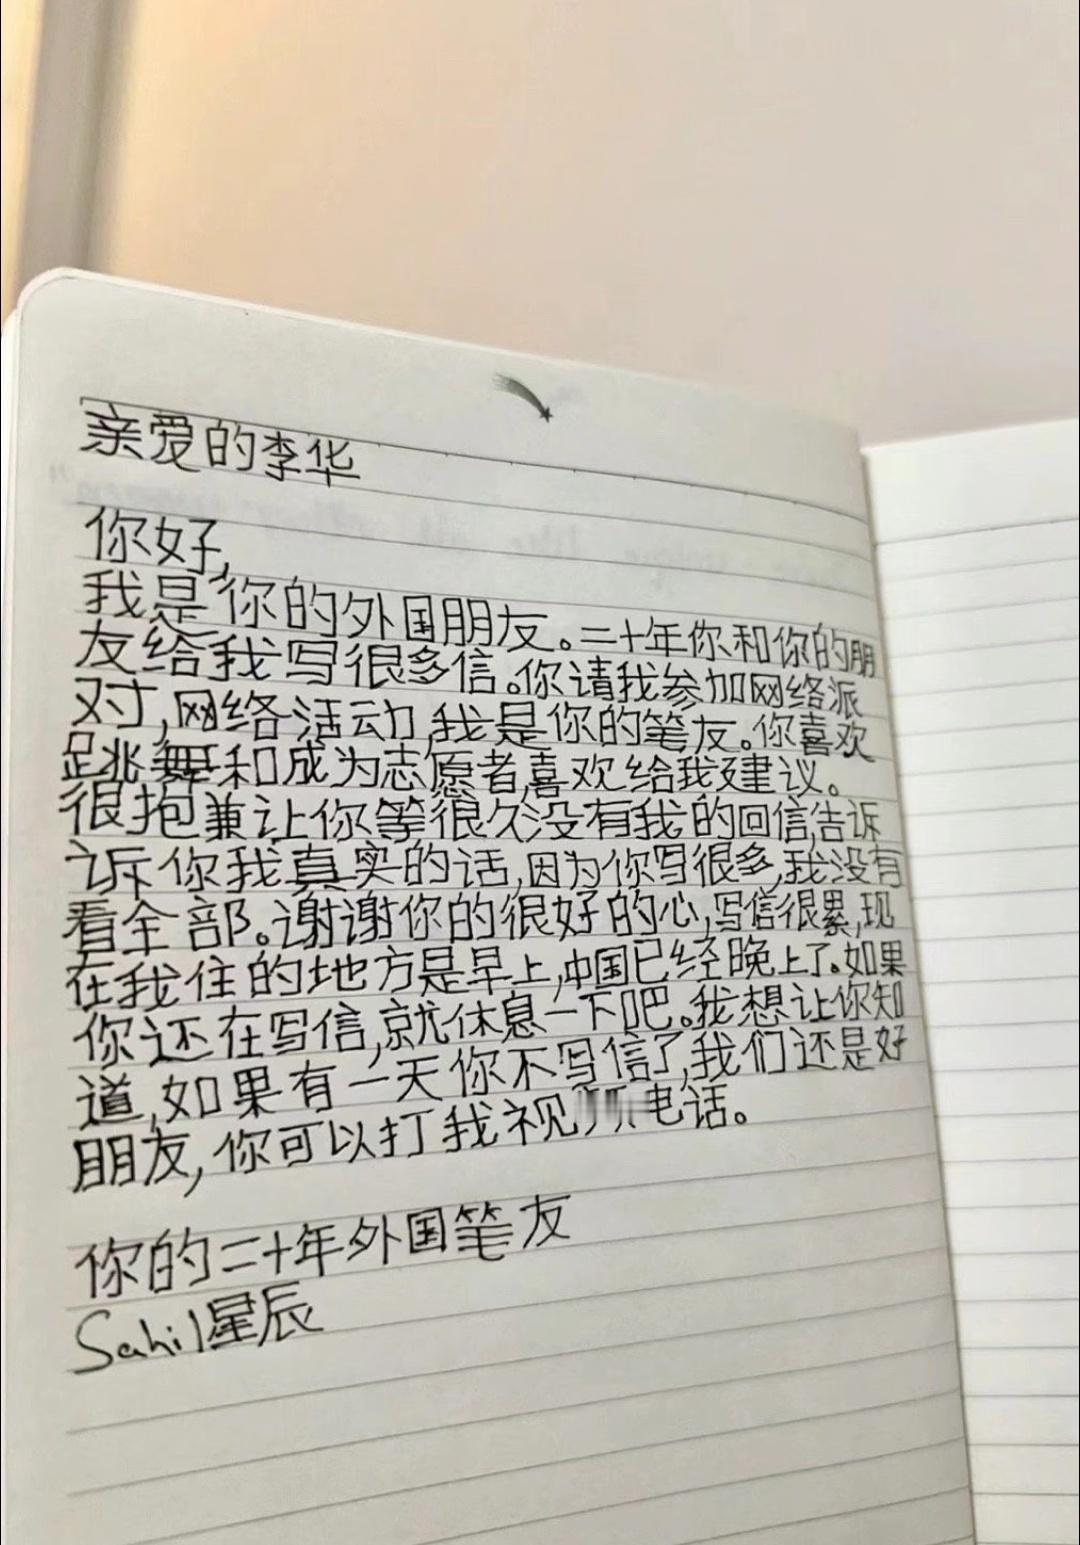 亲爱的李华
你好,
我是你的外国朋友。二十年你和你的朋
友给我写很多信。你请我参加网络派
对,网络活动,我是你的笔友。你喜欢
跳舞和成为志愿者,喜欢给我建议。
很抱兼让你等很久没有我的回信,告诉
诉你我真实的话,因为你写很多,我没有
看全部。谢谢你的很好的心,写信很累,现
在我住的地方是早上,中国已经晚上了。如果
你还在写信,就休息一下吧。我想让你知
道,如果有一天你不写信了,我们还是好
朋友,你可以打我视频电话。
你的二十年外国笔友
Sahil星辰